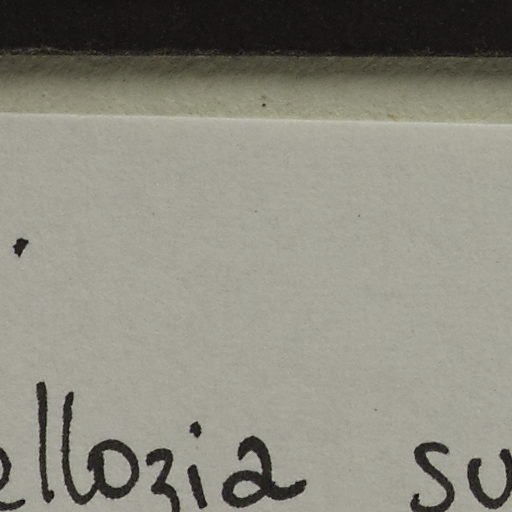 ellozia su